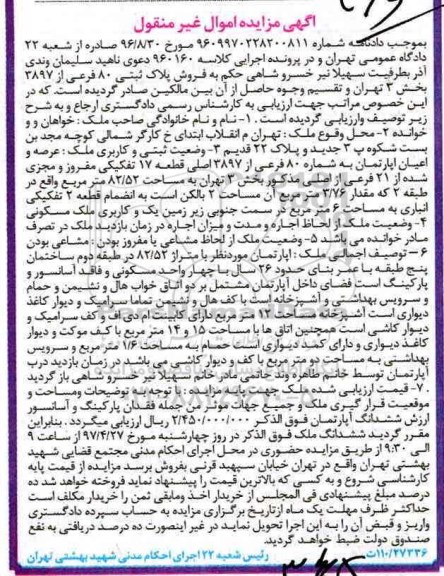 آگهی مزایده اموال غیر منقول
بموجب دادنامه شماره ۹۶۰۹۹۷۰۲۲۸۲۰۰۸۱۱ مورخ ۹۶/۸/۳۰ صادره از شعبه ۲۲
دادگاه عمومی تهران و در پرونده اجرایی کلاسه ۹۶۰۱۶۰ دعوی ناهید سلیمان وندی
آذر بطرفیت سهیلا نیر خسرو شاهی حکم به فروش پلاک ثبتی ۸۰ فرعی از ۳۸۹۷
بخش ۳ تهران و تقسیم وجوه حاصل از آن بین مالکین صادر گردیده است. که در
این خصوص مراتب جهت ارزیابی به کارشناس رسمی دادگستری ارجاع و به شرح
زیر توصیف وارزیابی گردیده است. ۱- نام و نام خانوادگی صاحب ملک : خواهان و و
خوانده ۲- محل وقوع ملک : تهران م انقلاب ابتدای خ کارگر شمالی کوچه مجد بن
بست شکوه پ ۳ جدید و پلاک ۲۲ قدیم ۳- وضعیت ثبتی و کاربری ملک : عرصه و
اعیان آپارتمان به شماره ۸۰ فرعی از ۳۸۹۷ اصلی قطعه ۱۷ تفکیکی مفروز و مجزی
شده از ۲۱ فرعی از اصلی مذکور بخش ۳ تهران به مساحت ۸۲/۵۲ متر مربع واقع در
طبقه ۲ که مقدار ۳/۷۶ متر مربع آن مساحت ۲ بالکن است به انضمام قطعه ۲ تفکیکی
انباری به مساحت ۶ متر مربع در سمت جنوبی زیر زمین یک و کاربری ملک مسکونی
۴- وضعیت ملک از لحاظ اجاره و مدت و میزان اجاره در زمان بازدید ملک در تصرف
مادر خوانده می باشد. ۵- وضعیت ملک از لحاظ مشاعی یا مفروز بودن : مشاعی بودن
۶ – توصیف اجمالی ملک : آپارتمان موردنظر با متراژ ۸۲/۵۲ در طبقه دوم ساختمان
پنج طبقه با عمر بنای حدود ۲۶ سال با چهار واحد مسکونی و فاقد آسانسور و
پارکینگ است فضای داخل آپارتمان مشتمل بر دو اتاق خواب هال و نشیمن و حمام
و سرویس بهداشتی و آشپزخانه است با کف هال و نشیمن تماما سرامیک و دیوار کاغذ
دیواری است آشپزخانه مساحت ۱۲ متر مربع دارای کابینت ام دی اف و کف سرامیک و
دیوار کاشی است همچنین اتاق ها با مساحت ۱۵ و ۱۴ متر مربع با کف موکت و دیوار
کاغذ دیواری و دارای کمد دیواری است. حمام به مساحت ۱/۶ متر مربع و سرویس
بهداشتی به مساحت دو متر مربع با کف و دیوار کاشی می باشد. در زمان بازدید درب
آپارتمان توسط خانم طاهره وند خاتمی مادر خانم سهیلا نیر خسرو شاهی باز گردید
۷- قیمت ارزیابی شده ملک جهت پایه مزایده :با توجه به توضیحات ومساحت و
موقعیت قرار گیری ملک و جمیع جهات موثر من جمله فقدان پارکینگ و آسانسور
ارزش ششدانگ آپارتمان فوق الذکر ۲/۴۵۰/۰۰۰/۰۰۰ ریال ارزیابی میگردد . بنابراین
مقرر گردید ششدانگ ملک فوق الذکر در روز چهارشنبه مورخ ۹۷/۴/۲۷ از ساعت ۹
الی ۹:۳۰ از طریق مزایده حضوری در محل اجرای احکام مدنی مجتمع قضایی شهید
بهشتی تهران واقع در تهران خیابان سپهبد قرنی بفروش برسد مزایده از قیمت پایه
کارشناسی شروع و به کسی که بالاترین قیمت را پیشنهاد نماید فروخته خواهد شد ده
درصد مبلغ پیشنهادی فی المجلس از خریدار اخذ ومابقی ثمن را خریدار مکلف است
حداکثر ظرف مهلت یک ماه ازتاریخ برگزاری مزایده به حساب سپرده دادگستری
واریز و قبض آن را به این اجرا تحویل نماید در غیر اینصورت ده درصد دریافتی به نفع
صندوق دولت ضبط خواهد گردید.
۱۱۰/۲۷۳۳۶ت رئیس شعبه ۲۲ اجرای احکام مدنی شهید بهشتی تهران